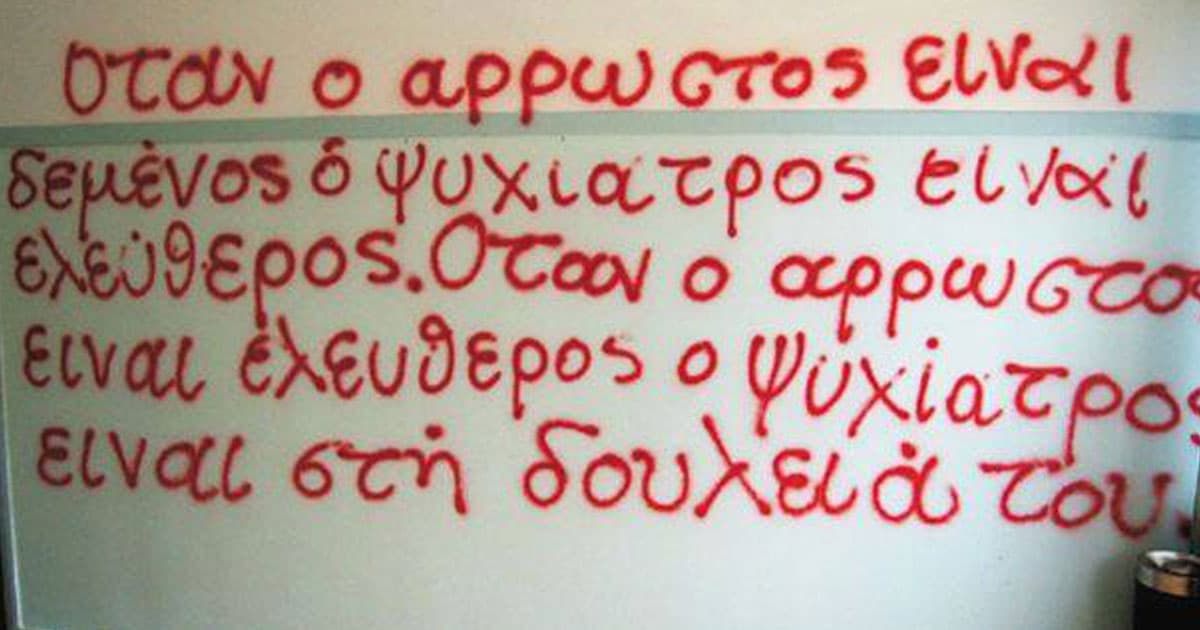 Οταν ο αρρωστος ειναι
δεμένος ό ψυχιατρος ειναι
ελεύθερος. Οταν ο αρρωστος
ειναι έλευθερος ο ψυχίατρος
ειναι στή δουλειά του.